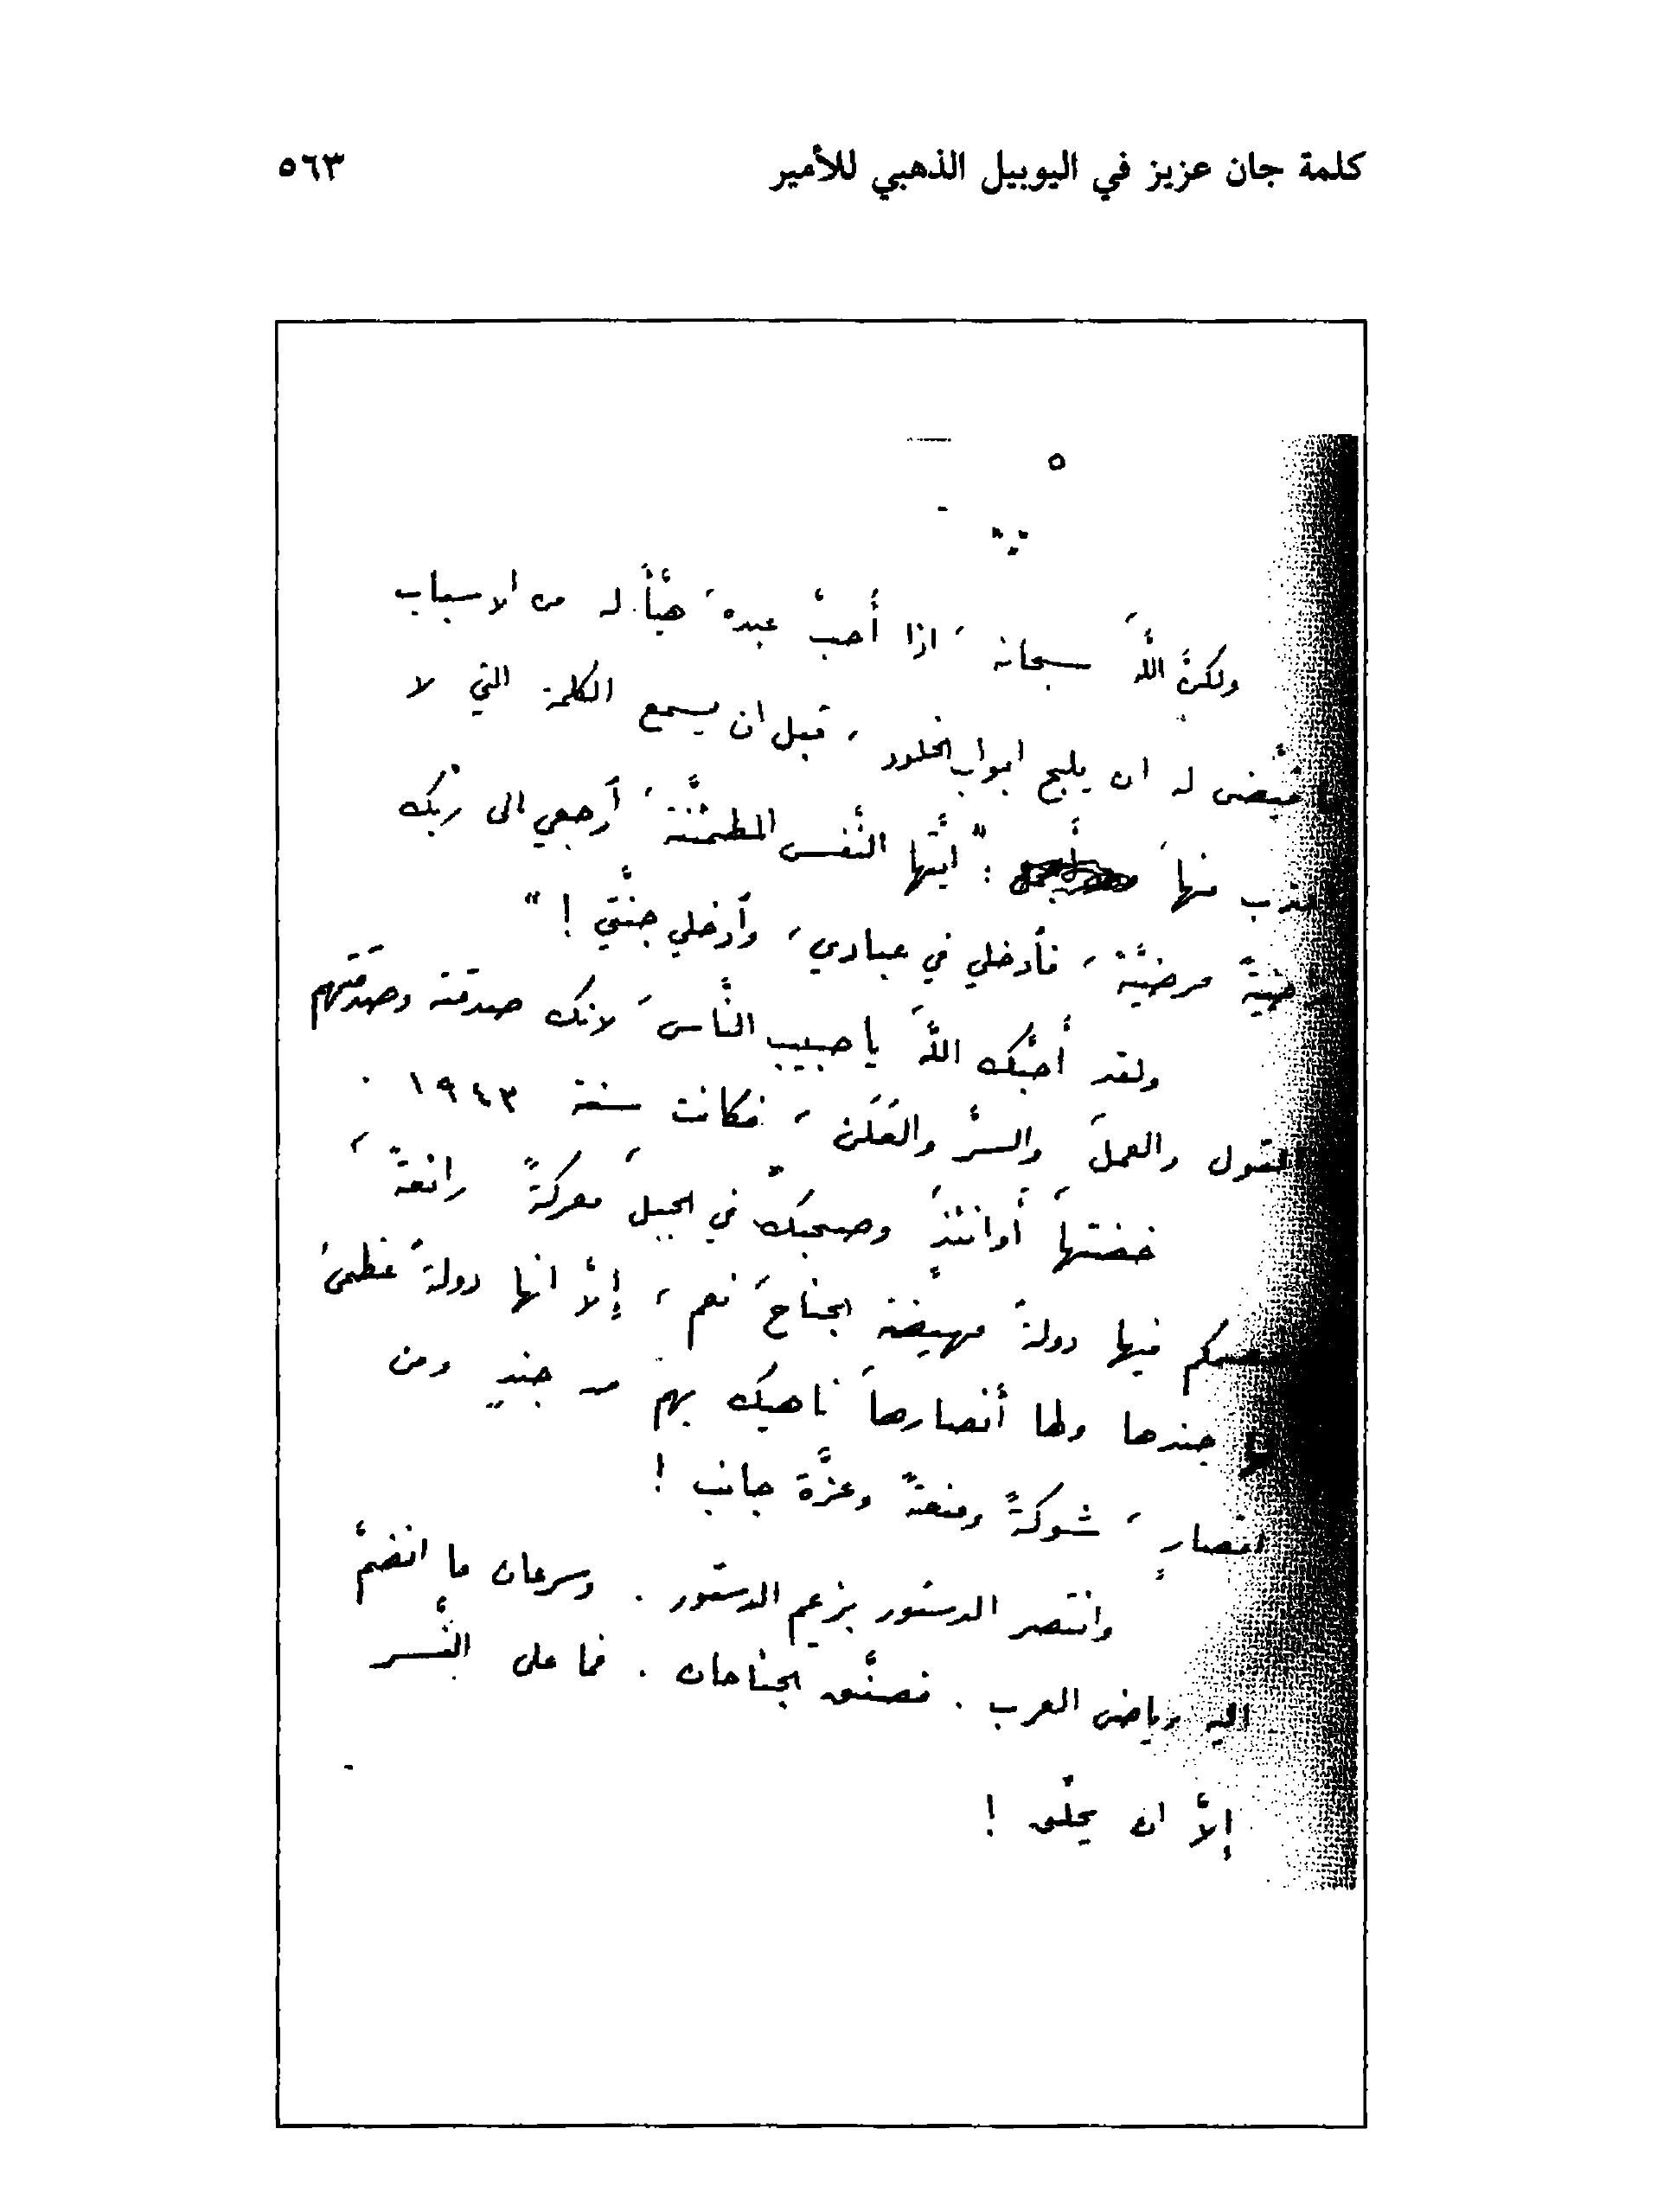 كلمة جان عزيز في اليوبيل الذهبي للأمير ٥٦٣
٥
ولكنَّ اللّهَ سبحانه، اذا أحبَّ عبده، هيَّأ له من الاسباب
ما قيَّض له ان يلج ابواب الخلود، قبل ان يسمع الكلمة التي لا
منها: "ايَّتها النَّفس المطمئنَّة، أرجعي الى ربّك
راضيةً مرضيَّة، فأدخلي في عبادي، وأدخلي جنَّتي!"
ولقد أحبَّك اللّهُ، يا حبيب النَّاس، لانك صدقته وصدقتَهم
القول والعمل، والسرَّ والعَلَن، فكانت سنة ١٩٤٣.
خضتَها، أوانئذٍ، وصحبك، في الجبل، معركةً رائعةً،
خصمكم فيها دولةً مهيضة الجناح، نعم، إلاَّ انها دولةً عظمى
جندها ولها أنصارها، ناهيك بهم من جندٍ ومن
انصارٍ، شوكةً ومنعةً وعزَّة جانب!
وانتصر الدستور بزعيم الدستور. وسرعان ما انضمَّ
اليه رياض العرب. فصفَّق الجناحان. فما على النَّسر
إلاَّ ان يحلّق!